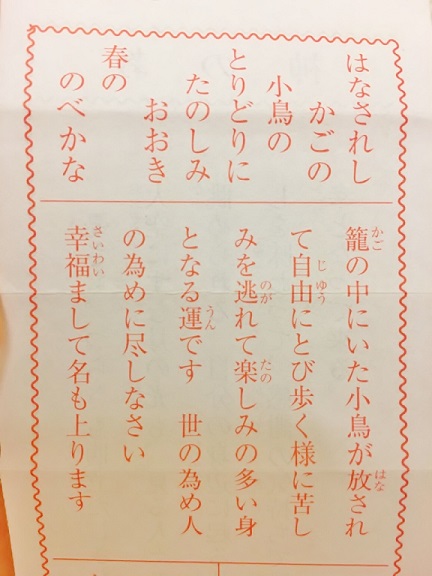 はなされし
かごの
小鳥の
とりどりに
たのしみ
おおき
春の
のべかな
籠の中にいた小鳥が放され
て自由にとび歩く様に苦し
みを逃れて楽しみの多い身
となる運です　世の為め人
の為めに尽しなさい
幸福まして名も上ります